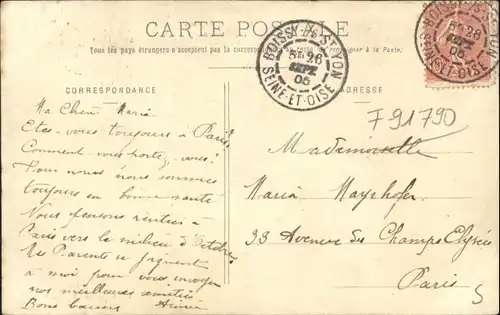 CARTE POSTALE
Tous les pays étrangers n'acceptent pas la correspondance au recto (se renseigner à la Poste)
CORRESPONDANCE
ADRESSE
BOISSY-S-S-YON
26
SEPT
05
SEINE-ET-OISE
BOISSY-S-S-YON
26
SEPT
05
SEINE-ET-OISE
F 91790
Ma Chère Maria
Etes-vous toujours à Paris?
Comment vous portez vous?
Pour nous nous sommes
toujours en bonne santé
Nous pensons rentrer à
Paris vers le milieu d'Octobre
Mes Parents se joignent
à moi pour vous envoyer
nos meilleures amitiés
Bons baisers Aimée
Mademoiselle
Maria Mayrhofer
33 Avenue des Champs Elysées
Paris
5